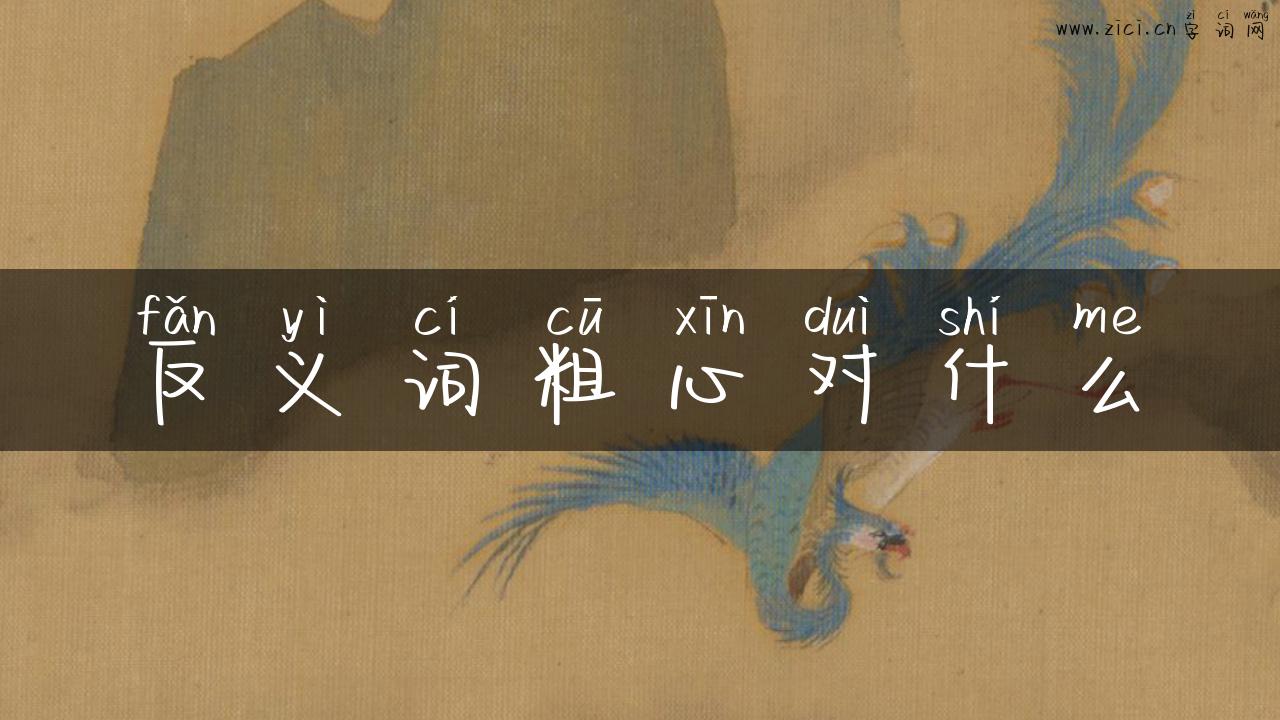 www.zici.cn
zì cí wǎng
字词网
fǎn yì cí cū xīn duì shí me
反义词粗心对什么